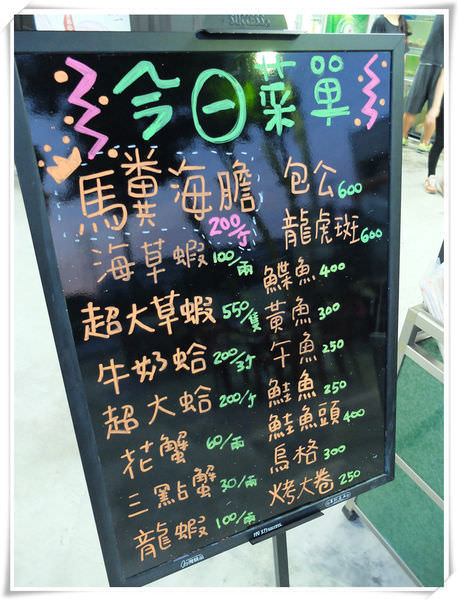 SUCCESS
今日菜單
馬糞海膽 200/个
海草蝦 100/兩
超大草蝦 550/隻
牛奶蛤 200/3个
超大蛤 200/个
花蟹 60/兩
三點蟹 30/兩
龍蝦 100/兩
包公 600
龍虎斑 600
鰈魚 400
黃魚 300
午魚 250
鮭魚 250
鮭魚頭 400
烏格 300
烤大卷 250